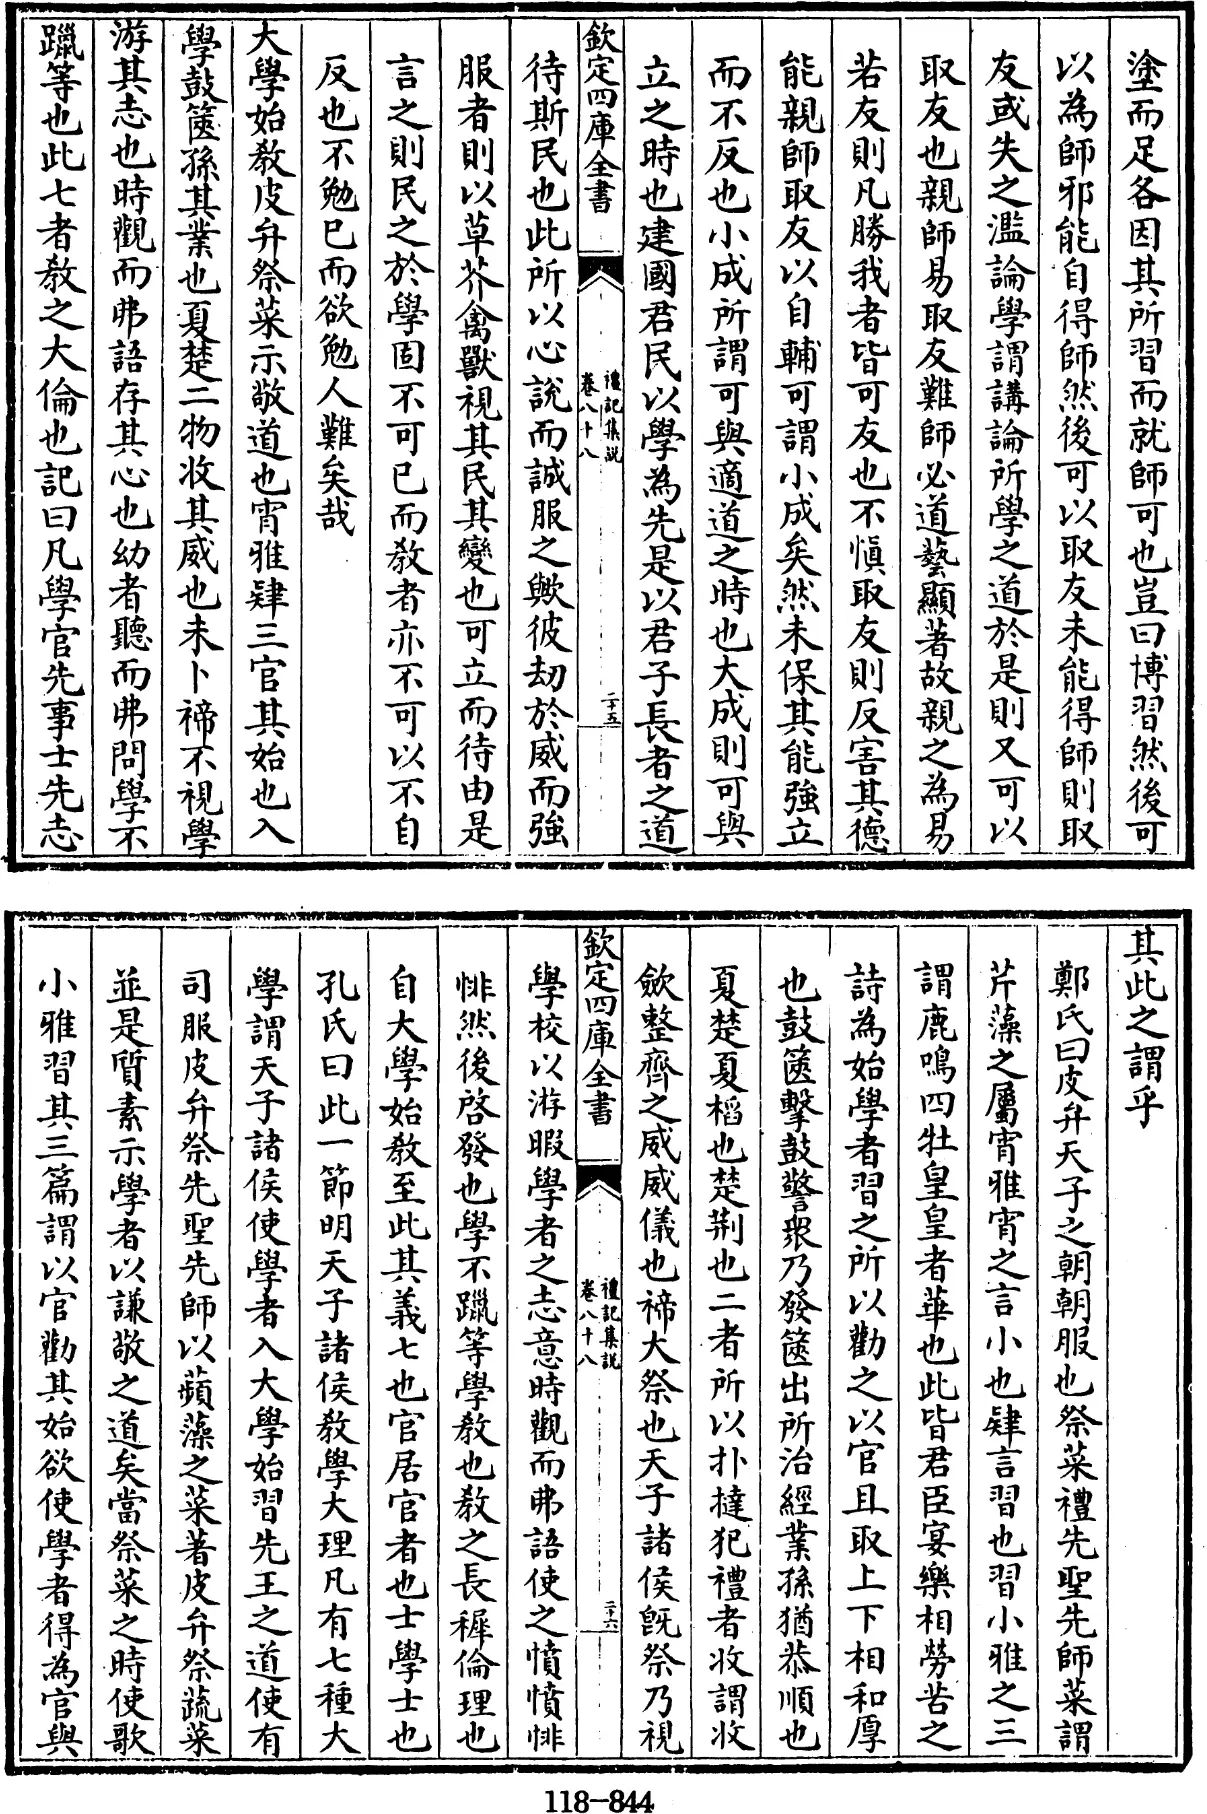 塗而足各因其所習而就師可也豈曰博習然後可
以為師邪能自得師然後可以取友未能得師則取
友或失之濫論學謂講論所學之道於是則又可以
取友也親師易取友難師必道藝顯著故親之為易
若友則凡勝我者皆可友也不慎取友則反害其德
能親師取友以自輔可謂小成矣然未保其能強立
而不反也小成所謂可與適道之時也大成則可與
立之時也建國君民以學為先是以君子長者之道
欽定四庫全書
禮記集說
卷八十八
二十五
待斯民也此所以心說而誠服之歟彼劫於威而強
服者則以草芥禽獸視其民其變也可立而待由是
言之則民之於學固不可已而教者亦不可以不自
反也不勉已而欲勉人難矣哉
大學始教皮弁祭菜示敬道也宵雅肄三官其始也入
學鼓篋孫其業也夏楚二物收其威也未卜禘不視學
游其志也時觀而弗語存其心也幼者聽而弗問學不
躐等也此七者教之大倫也記曰凡學官先事士先志
其此之謂乎
鄭氏曰皮弁天子之朝朝服也祭菜禮先聖先師菜謂
芹藻之屬宵雅宵之言小也肄言習也習小雅之三
謂鹿鳴四牡皇皇者華也此皆君臣宴樂相勞苦之
詩為始學者習之所以勸之以官且取上下相和厚
也鼓篋擊鼓警衆乃發篋出所治經業孫猶恭順也
夏楚夏榙也楚荆也二者所以扑撻犯禮者收謂收
歛整齊之威威儀也禘大祭也天子諸侯旣祭乃視
欽定四庫全書
禮記集說
卷八十八
二十六
學校以游暇學者之志意時觀而弗語使之憤憤悱
悱然後啓發也學不躐等學教也教之長穉倫理也
自大學始教至此其義七也官居官者也士學士也
孔氏曰此一節明天子諸侯教學大理凡有七種大
學謂天子諸侯使學者入大學始習先王之道使有
司服皮弁祭先聖先師以蘋藻之菜著皮弁祭蔬菜
並是質素示學者以謙敬之道矣當祭菜之時使歌
小雅習其三篇謂以官勸其始欲使學者得為官與
118-844